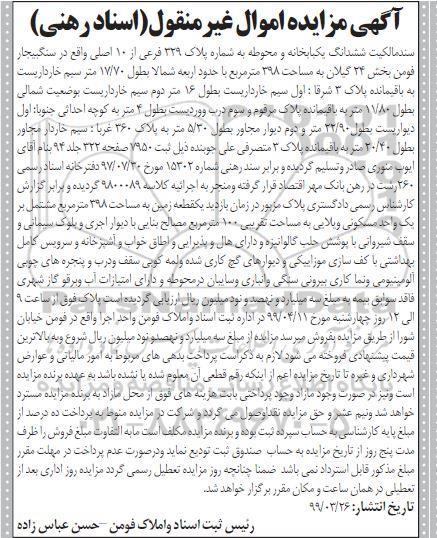 آگهی مزایده اموال غیر منقول(اسناد رهنی)
سندمالکیت ششدانگ یکبابخانه و محوطه به شماره پلاک ۳۲۹ فرعی از ۱۰ اصلی واقع در سنگبیجار
فومن بخش ۲۴ گیلان به مساحت ۳۹۸ مترمربع با حدود اربعه شمالا بطول ۱۷/۷۰ متر سیم خارداریست
به باقیمانده پلاک ۳ شرقا : اول سیم خارداریست بطول ۱۶ متر دوم سیم خارداریست بوضعیت شمالی
بطول ۱۱/۸۰ متر به باقیمانده پلاک مرقوم و سوم درب وورودیست بطول ۴ متر به کوچه احداثی جنوبا: اول
دیواریست بطول ۲۲/۹۰ متر و دوم دیوار مجاور بطول ۵/۳۰ متر به پلاک ۳۶۰ غربا : سیم خاردار مجاور
بطول ۲۰/۴۰ متر به باقیمانده پلاک ۳ متصرفی علی جوینده ذیل ثبت ۷۹۵۰ صفحه ۳۲۲ جلد ۹۴ بنام آقای
ایوب منوری صادر وتسلیم گردیده و برابر سند رهنی شماره ۱۵۳۰۲ مورخ ۹۷/۰۷/۳۰ دفترخانه اسناد رسمی
۲۶۰ رشت در رهن بانک مهر اقتصاد قرار گرفته ومنجر به اجرائیه کلاسه ۹۸۰۰۰۸۹ گردیده و برابر گزارش
کارشناس رسمی دادگستری پلاک مزبور در زمان بازدید یکقطعه زمین به مساحت ۳۹۸ مترمربع مشتمل بر
یک واحد مسکونی ویلایی به مساحت تقریبی ۱۰۰ مترمربع مصالح بنایی با دیوار اجری و بلوک سیمانی و
سقف شیروانی با پوشش حلب گالوانیزه و دارای هال و پذیرایی و اطاق خواب و آشپزخانه و سرویس کامل
بهداشتی با کف سازی موزاییکی و دیوارهای گچ کاری شده ولمه کوبی سقف ودرب و پنجره های چوبی
آلومینیومی ونما کاری بیرونی سنگی وانباری وسایبان درمحوطه و دارای امتیازات آب وبرقو گاز شهری
فاقد سوابق بیمه به مبلغ سه میلیارد و نهصد و نود میلیون ریال ارزیابی گردیده است پلاک فوق از ساعت ۹
الی ۱۲ روز چهارشنبه مورخ ۹۹/۰۴/۱۱ در اداره ثبت اسناد واملاک فومن واحد اجرا واقع در فومن خیابان
شورا از طریق مزایده بفروش میرسد مزایده از مبلغ سه میلیارد و نهصدو نود میلیون ریال شروع وبه بالاترین
قیمت پیشنهادی فروخته می شود لازم به ذکراست پرداخت بدهی های مربوط به امور مالیاتی و عوارض
شهرداری و غیره تا تاریخ مزایده اعم از اینکه رقم قطعی آن معلوم شده یا نشده باشد به عهده برنده مزایده
است ونیز در صورت وجود مازاد وجود پرداختی بابت هزینه های فوق از محل مازاد به برنده مزایده مسترد
خواهد شد ونیم عشر و حق مزایده نقداوصول می گردد و شرکت در مزایده منوط به پرداخت ده درصد از
مبلغ پایه کارشناسی به حساب سپرده ثبت بوده و برنده مزایده مکلف است مابه التفاوت مبلغ فروش را ظرف
مدت پنج روز از تاریخ مزایده به حساب صندوق ثبت تودیع نماید ودرصورت عدم پرداخت در مهلت مقرر
مبلغ مذکور قابل استرداد نمی باشد ضمنا چنانچه روز مزایده تعطیل رسمی گردد مزایده روز اداری بعد از
تعطیلی در همان ساعت و مکان مقرر برگزار خواهد شد.
تاریخ انتشار: ۹۹/۰۳/۲۶
رئیس ثبت اسناد واملاک فومن –حسن عباس زاده